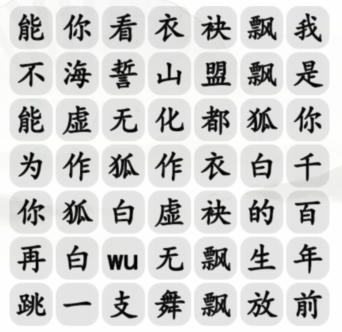 能你看衣袂飘我
不海誓山盟飘是
能虚无化都狐你
为作狐作衣白千
你狐白虚袂的百
再白wu无飘生年
跳一支舞飘放前